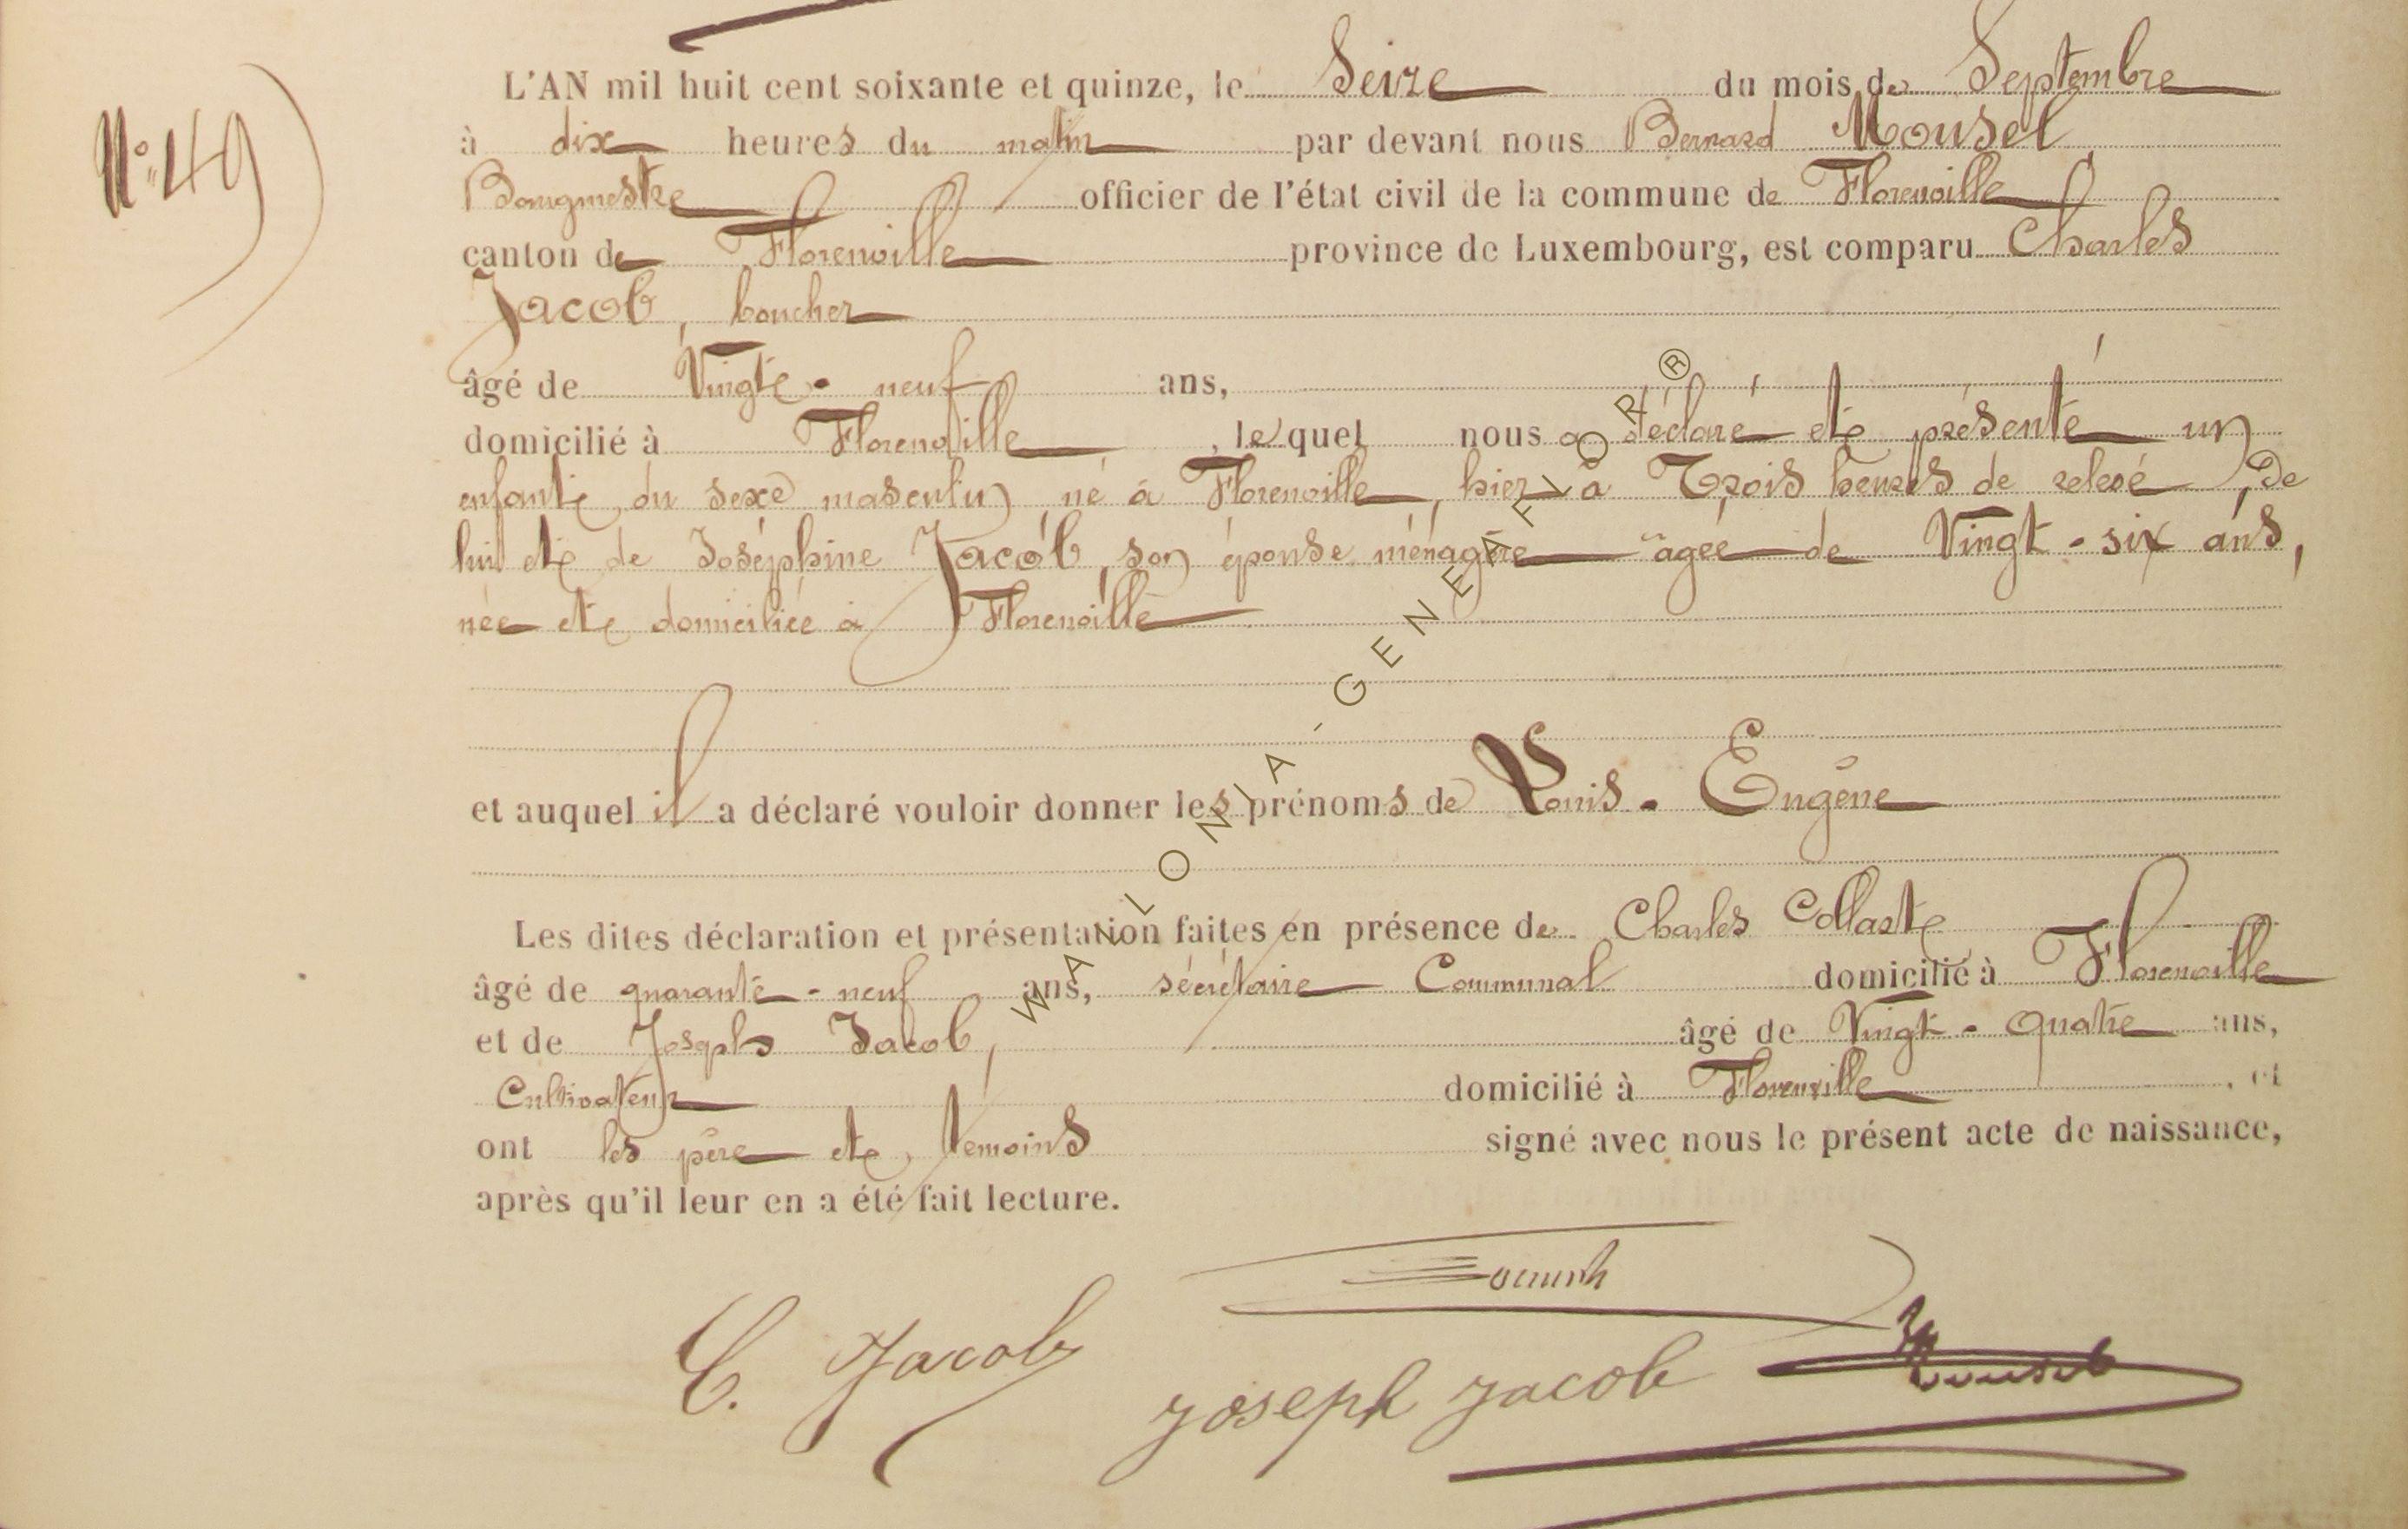 N° 49
L'AN mil huit cent soixante et quinze, le Seize du mois de Septembre
à dix heures du matin par devant nous Bernard Mousel
Bourgmestre officier de l'état civil de la commune de Florenville
canton de Florenville province de Luxembourg, est comparu Charles
Jacob, boucher
âgé de Vingt-neuf ans,
domicilié à Florenville, lequel nous a déclaré et présenté un
enfant du sexe masculin, né à Florenville, hier à Trois heures de relevé, de
lui et de Joséphine Jacob, son épouse ménagère âgée de Vingt-six ans,
née et domiciliée à Florenville
et auquel il a déclaré vouloir donner les prénoms de Louis-Eugène
Les dites déclaration et présentation faites en présence de Charles Collart
âgé de quarante-neuf ans, sécrétaire Communal domicilié à Florenville
et de Joseph Jacob, âgé de Vingt-quatre ans,
Cultivateur domicilié à Florenville, et
ont les père et témoins signé avec nous le présent acte de naissance,
après qu'il leur en a été fait lecture.
C. Jacob
Joseph Jacob
Mousel
WALLONIA-GENEAFLOR ®